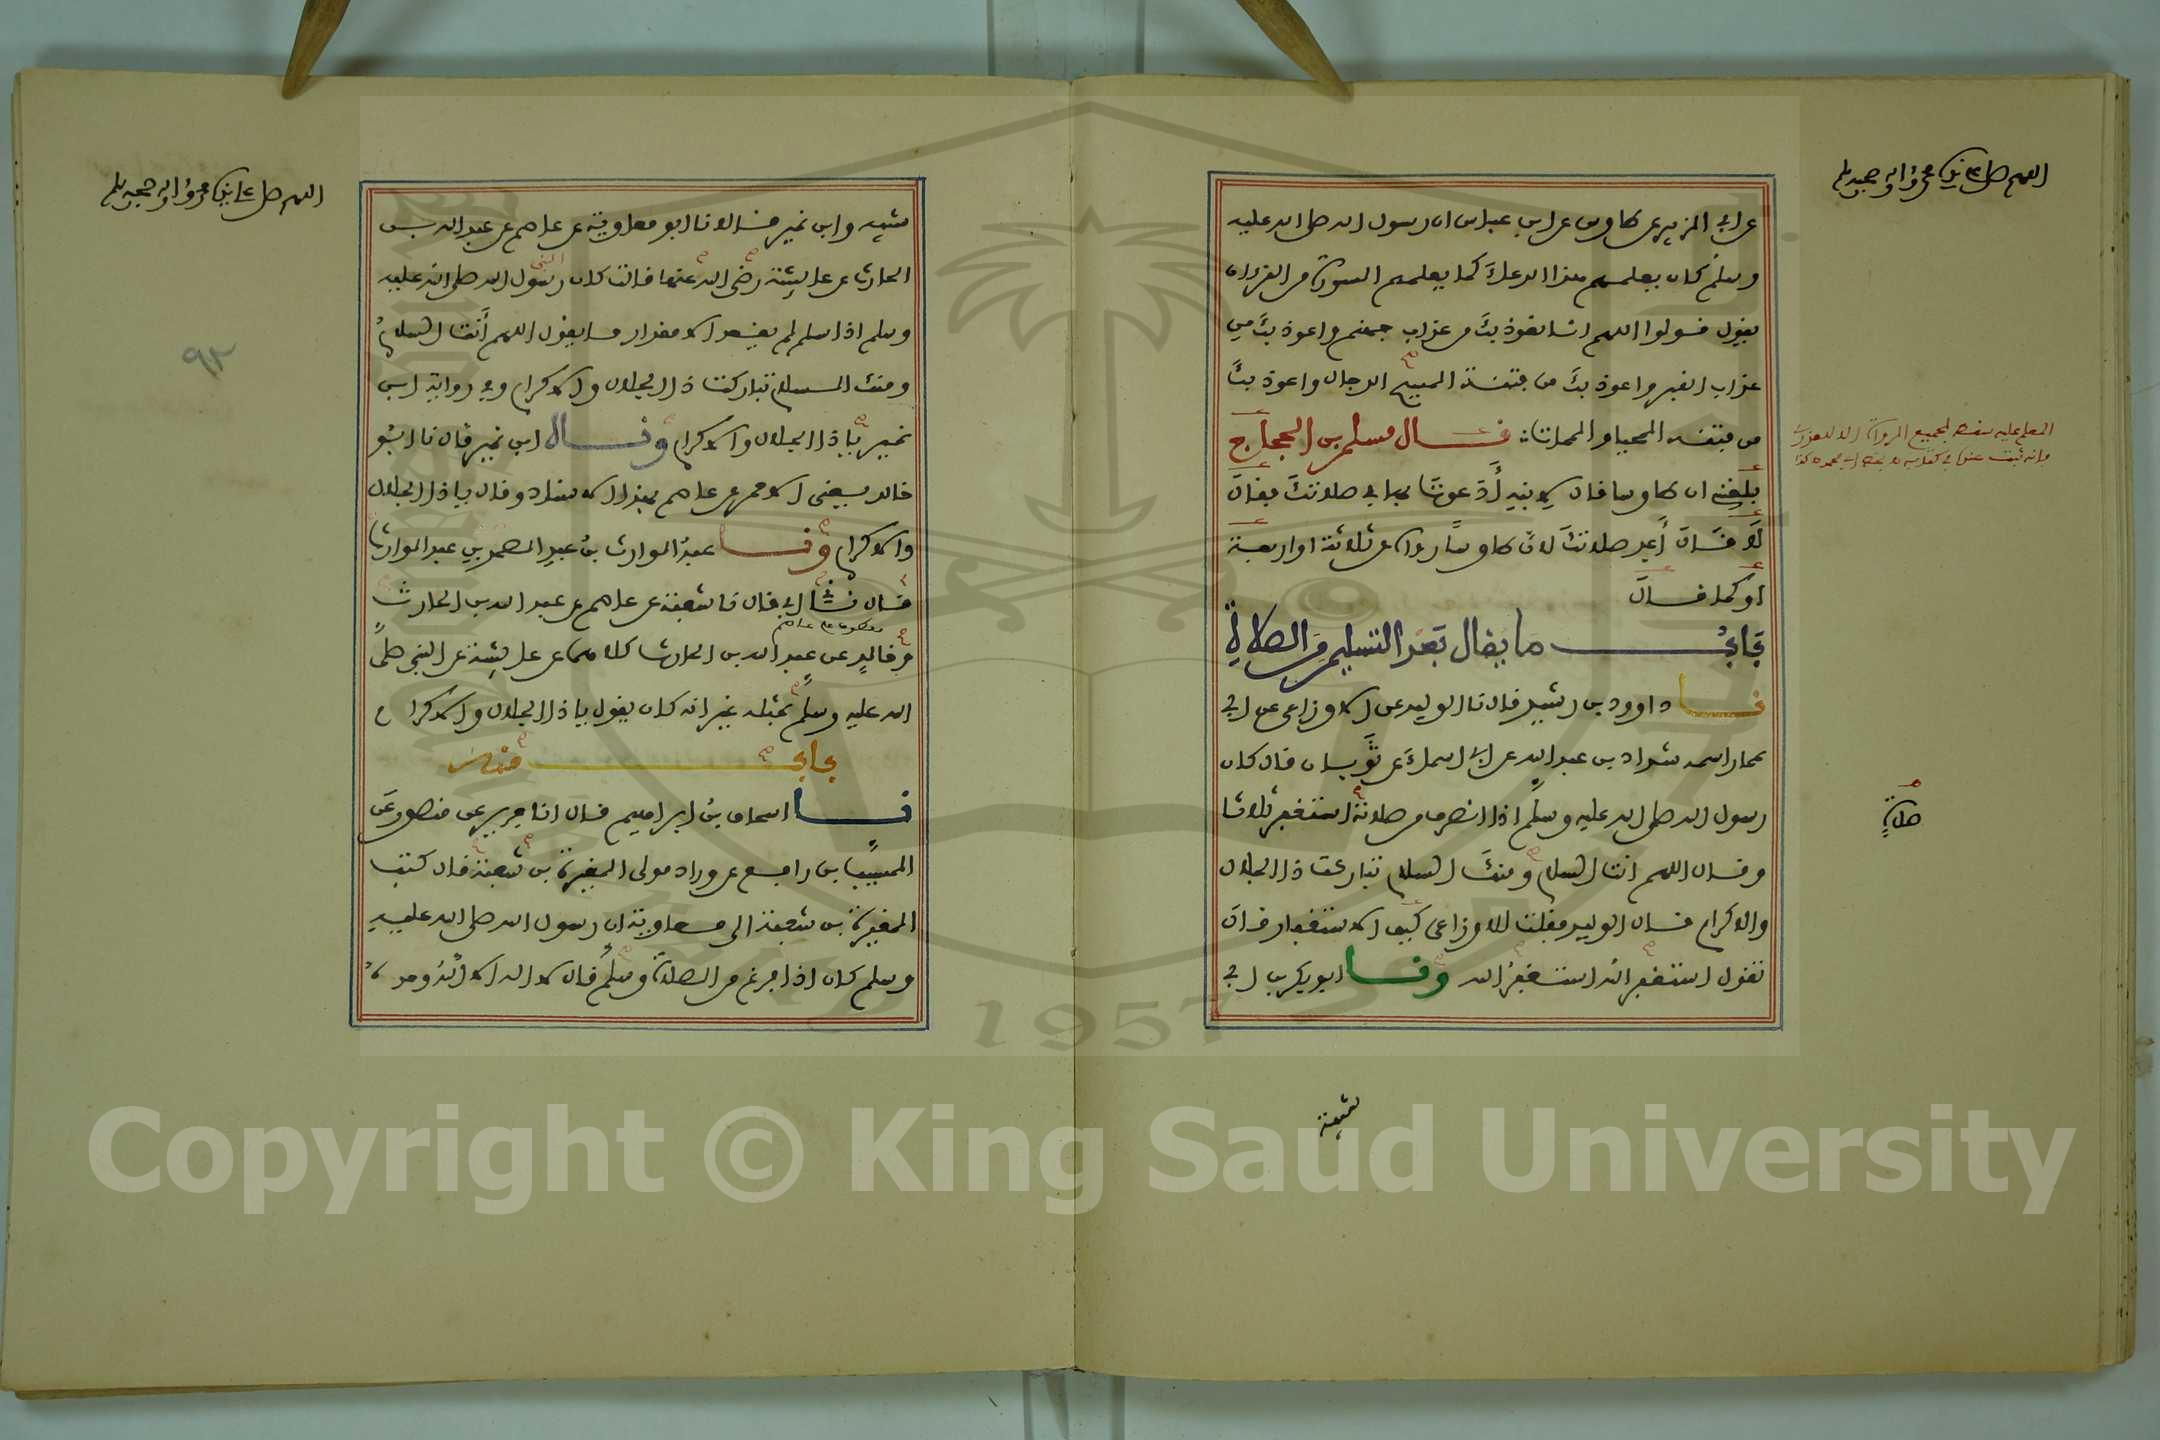 اللهم صل على نبينا محمد وآله وصحبه وسلم
عن ابي الزبير عن طاوس عن ابن عباس ان رسول الله صلى الله عليه
وسلم كان يعلمهم هذا الدعاء كما يعلمهم السورة من القرءان
يقول قولوا اللهم انا نعوذ بك من عذاب جهنم واعوذ بك من
عذاب القبر واعوذ بك من فتنة المسيح الدجال واعوذ بك
من فتنة المحيا والممات قال مسلم بن الحجاج
بلغني ان طاوسا قال لابنه أدعوت بها في صلاتك فقال
لا قال أعد صلاتك لان طاوسا رواه عن ثلاثة او اربعة
او كما قال
باب ما يقال بعد التسليم من الصلاة
نا داوود بن رشيد قال نا الوليد عن الاوزاعي عن ابي
عمار اسمه شداد بن عبد الله عن ابي اسماء عن ثوبان قال كان
رسول الله صلى الله عليه وسلم اذا انصرف من صلاته استغفر ثلاثا
وقال اللهم انت السلام ومنك السلام تباركت ذا الجلال
والاكرام قال الوليد فقلت للاوزاعي كيف الاستغفار قال
تقول استغفر الله استغفر الله ونا ابو بكر بن ابي
صلاته
شيبة
اللهم صل على نبينا محمد وآله وصحبه وسلم
٩٢
شيبة وابن نمير قالا نا ابو معاوية عن عاصم عن عبد الله بن
الحارث عن عايشة رضي الله عنها قالت كان رسول الله صلى الله عليه
النبي
وسلم اذا سلم لم يقعد الا مقدار ما يقول اللهم أنت السلام
ومنك السلام تباركت ذا الجلال والاكرام وفي رواية ابن
نمير يا ذا الجلال والاكرام وقال ابن نمير قال نا ابو
خالد يعني الاحمر عن عاصم بهذا الاسناد وقال يا ذا الجلال
والاكرام ونا عبد الوارث بن عبد الصمد بن عبد الوارث
قال نا ابي قال نا شعبة عن عاصم عن عبد الله بن الحارث
وخالد عن عبد الله بن الحارث كلاهما عن عايشة عن النبي صلى
الله عليه وسلم بمثله غير انه كان يقول يا ذا الجلال والاكرام
باب منه
نا اسحاق بن ابراهيم قال انا جرير عن منصور عن
المسيب بن رافع عن وراد مولى المغيرة بن شعبة قال كتب
المغيرة بن شعبة الى معاوية ان رسول الله صلى الله عليه
وسلم كان اذا فرغ من الصلاة وسلم قال لا اله الا الله وحده لا
Copyright © King Saud University
1957